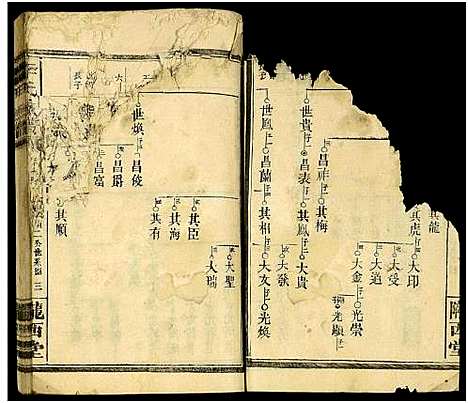 隴西堂
其龍
其虎
大印
大受
大造
大金
光崇
光顯
昌祚
其梅
世貴
昌表
其鳳
大貴
大發
世鳳
昌蘭
其相
大女
光煥
大聖
大瑞
其臣
其海
其有
世煥
昌俊
昌爵
昌富
其順
長子
三
隴西堂